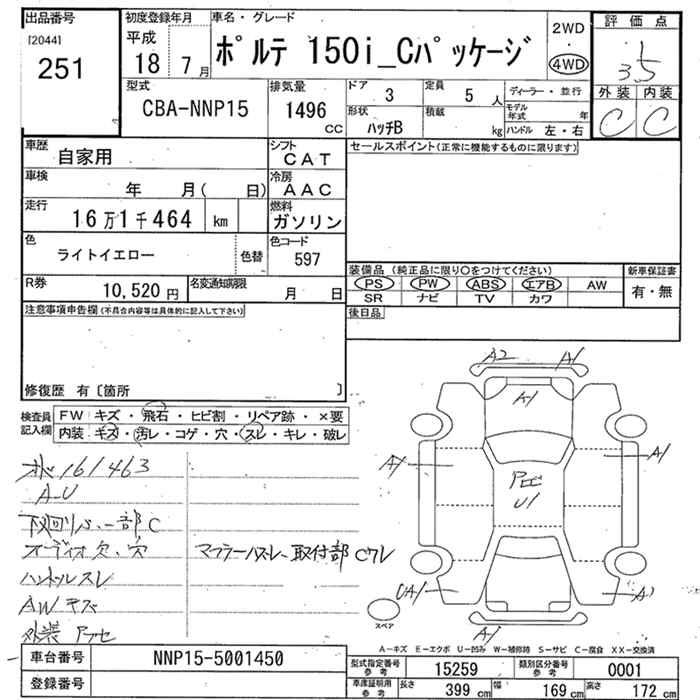 出品番号
[2044]
251
初度登録年月
平成
18 7月
車名・グレード
ポルテ 150i_Cパッケージ
2WD
・
4WD
評価点
3.5
外装 内装
C C
型式
CBA-NNP15
排気量
1496
CC
ドア
3
定員
5 人
ディーラー・並行
形状
ハッチB
積載
kg
モデル年式 年
ハンドル 左・右
車歴
自家用
シフト
CAT
セールスポイント(正常に機能するものに限ります)
車検
年 月( 日)
冷房
AAC
走行
16万1千464 km
燃料
ガソリン
色
ライトイエロー
色替
色コード
597
R券
10,520 円
名変通知期限
月 日
装備品 (純正品に限り○をつけてください)
PS PW ABS エアB AW
SR ナビ TV カワ
新車保証書
有・無
後日品
注意事項申告欄(不具合内容等は具体的に記入して下さい)
修復歴 有〔箇所 〕
検査員
記入欄
FW キズ・飛石・ヒビ割・リペア跡・×要
内装 キズ・汚レ・コゲ・穴・スレ・キレ・破レ
161463
A-U
下回りS、一部C
オーディオ欠、穴
マフラーハズレ、取付部Cワレ
ハンドルスレ
AWキズ
外装 アセ
A2 A1
A1
A1 A1
U1
UA1 A1
A1
スペア
A-キズ E-エクボ U-凹み W-補修跡 S-サビ C-腐食 XX-交換済
車台番号 NNP15-5001450
登録番号
型式指定番号
参考
15259
類別区分番号
参考
0001
車庫証明用
参考
長さ 399 cm 幅 169 cm 高さ 172 cm